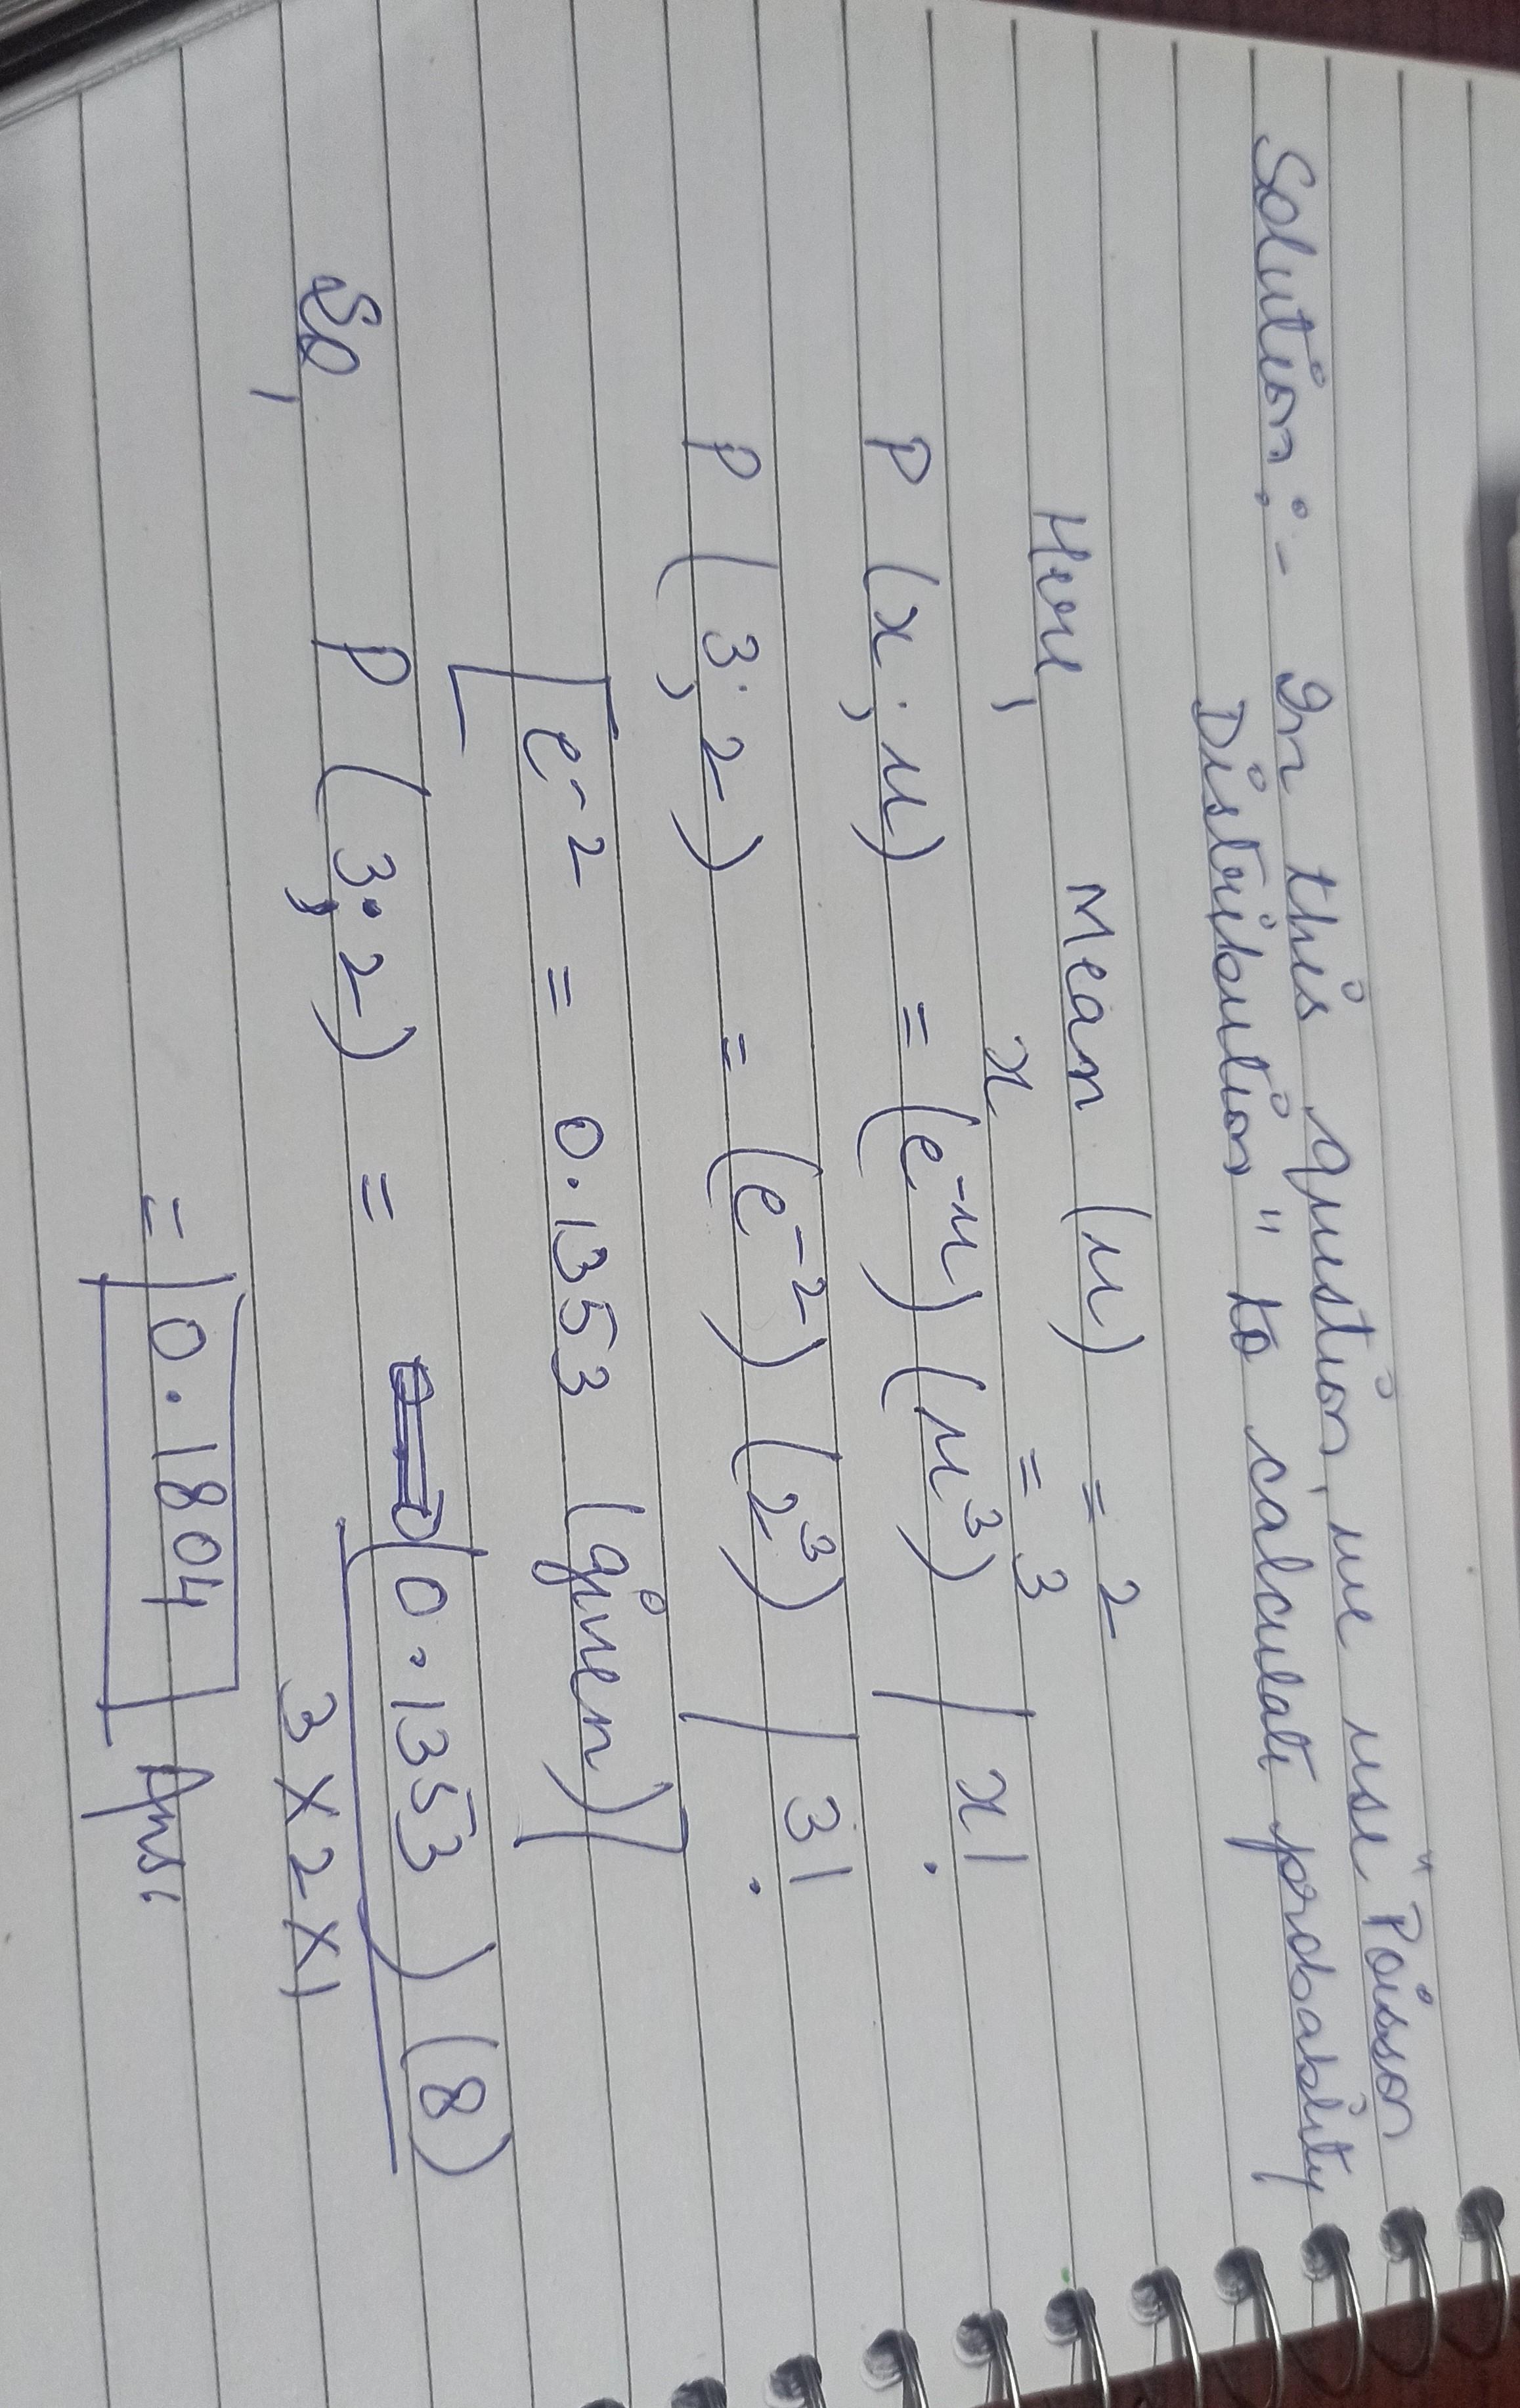 Solution :- In this question we use "Poisson
Distribution" to calculate probability
Here, Mean (μ) = 2
x = 3
P (x; μ) = (e⁻μ) (μ³) / x!
P (3; 2) = (e⁻²) (2³) / 3!
[e⁻² = 0.1353 (given)]
So, P (3; 2) = (0.1353) (8)
3 × 2 × 1
= 0.1804 Ans.